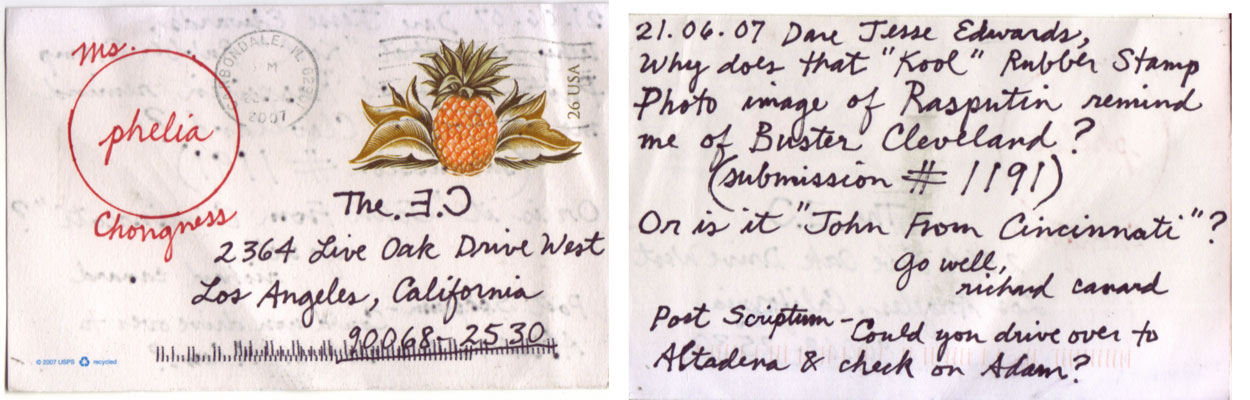 Ms.
phelia
Chongness
BONDALE, IL
M
2007
26 USA
The .Ǝ.Ɔ
2364 Live Oak Drive West
Los Angeles, California
90068-2530
© 2007 USPS recycled
21.06.07 Dare Jesse Edwards,
Why does that "Kool" Rubber Stamp
Photo image of Rasputin remind
me of Buster Cleveland?
(submission # 1191)
Or is it "John From Cincinnati"?
Go well,
richard canard
Post Scriptum - Could you drive over to
Altadena & check on Adam?